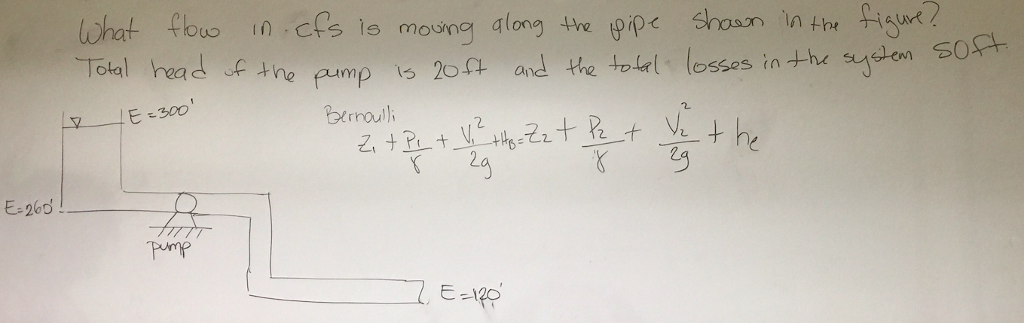 What flow in cfs is moving along the pipe shown in the figure?
Total head of the pump is 20ft and the total losses in the system 50ft.
E=300'
Bernoulli
Z₁ + P₁/γ + V₁²/2g + H_B = Z₂ + P₂/γ + V₂²/2g + he
E=260'
pump
E=120'